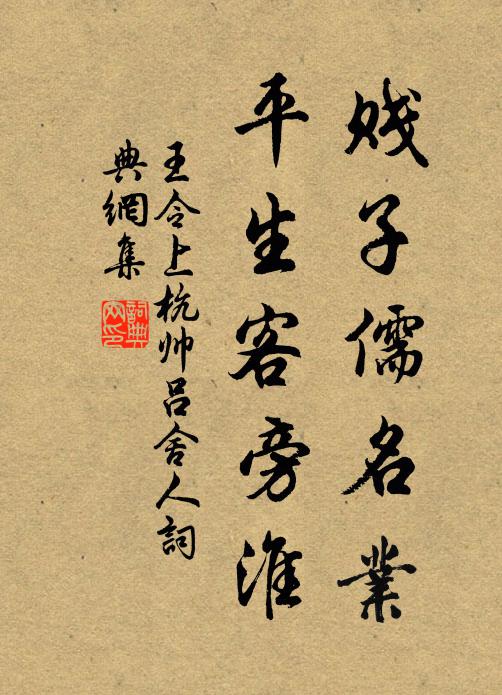 賤子儒名業
平生客旁淮
王令上杭帥吕舍人詞
典網集
詞典
网印